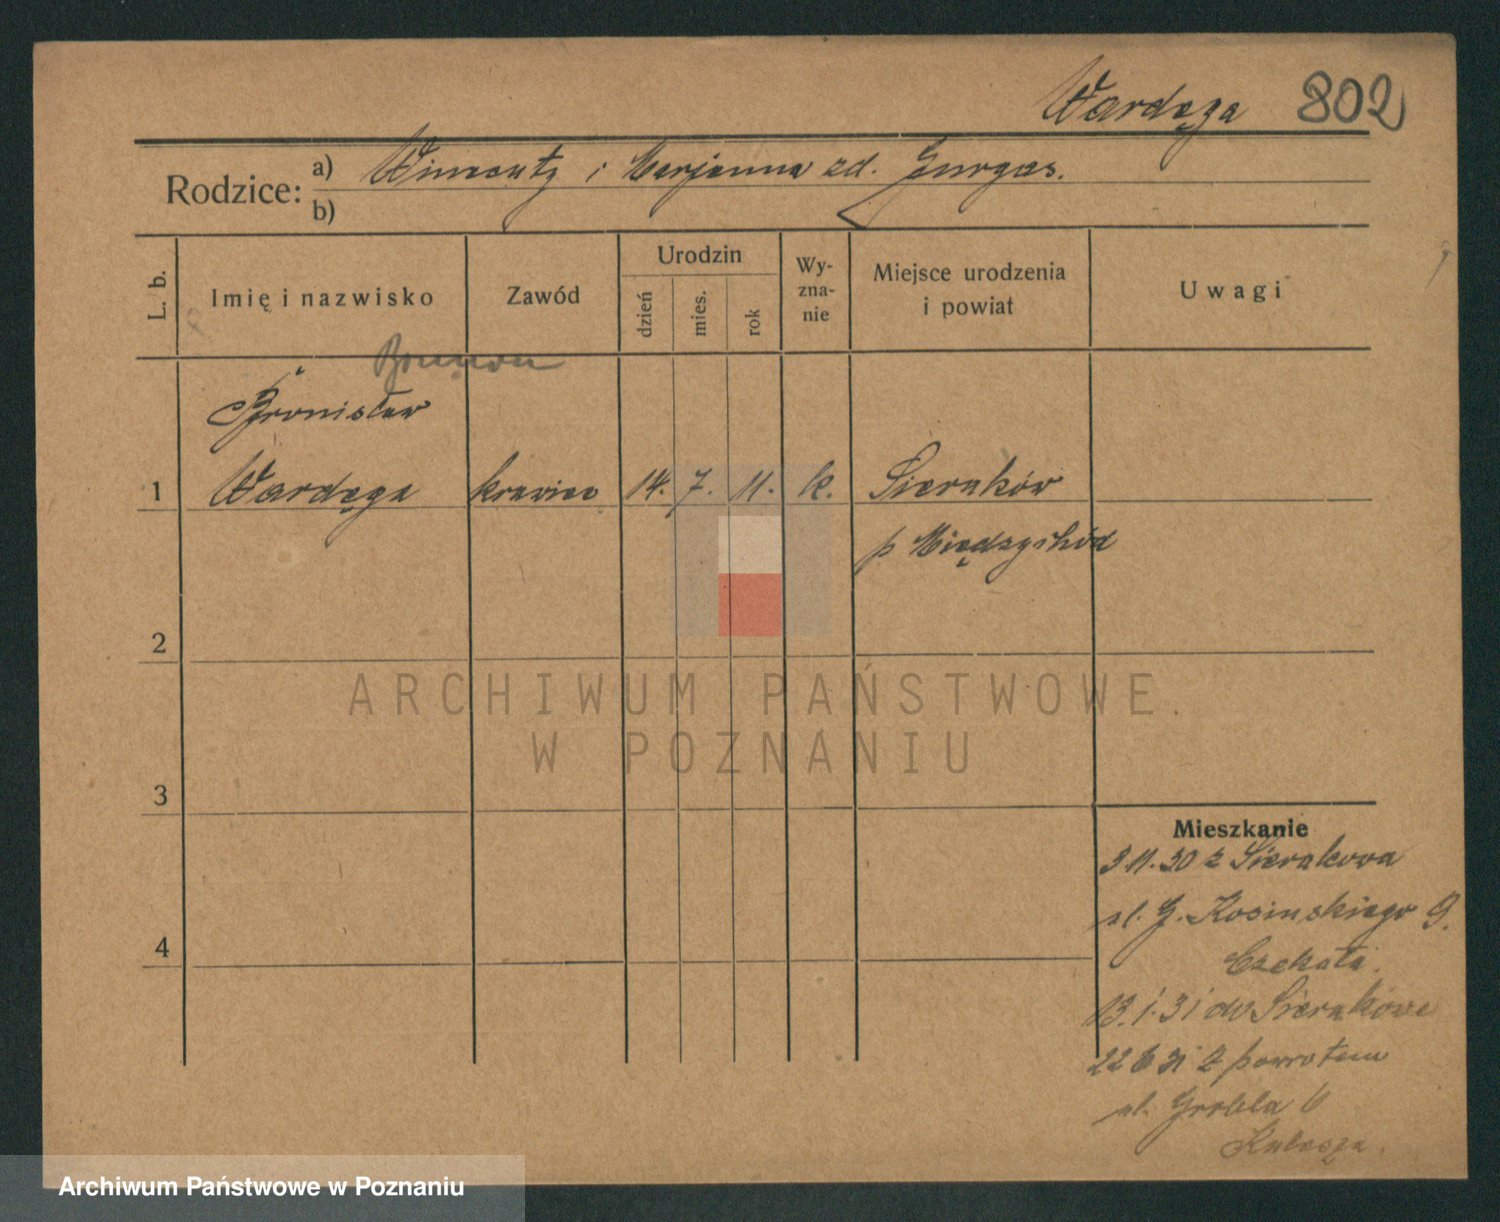 Wardęga 802
Rodzice: a) Wincenty i Marjanna zd. Gurgas.
b)
L. b.
Imię i nazwisko
Zawód
Urodzin
dzień
mies.
rok
Wy-
zna-
nie
Miejsce urodzenia
i powiat
Uwagi
Bronisław
1 Wardęga krawiec 14. 7. 11. k. Sieraków
p Międzychód
2
3
4
Mieszkanie
3.11.30 z Sierakowa
ul. G. Kosinskiego 9.
Czekała.
13.1.31 do Sierakowa
22 6 31 z powrotem
ul. Grobla 6
Kubasza.
ARCHIWUM PAŃSTWOWE
W POZNANIU
Archiwum Państwowe w Poznaniu